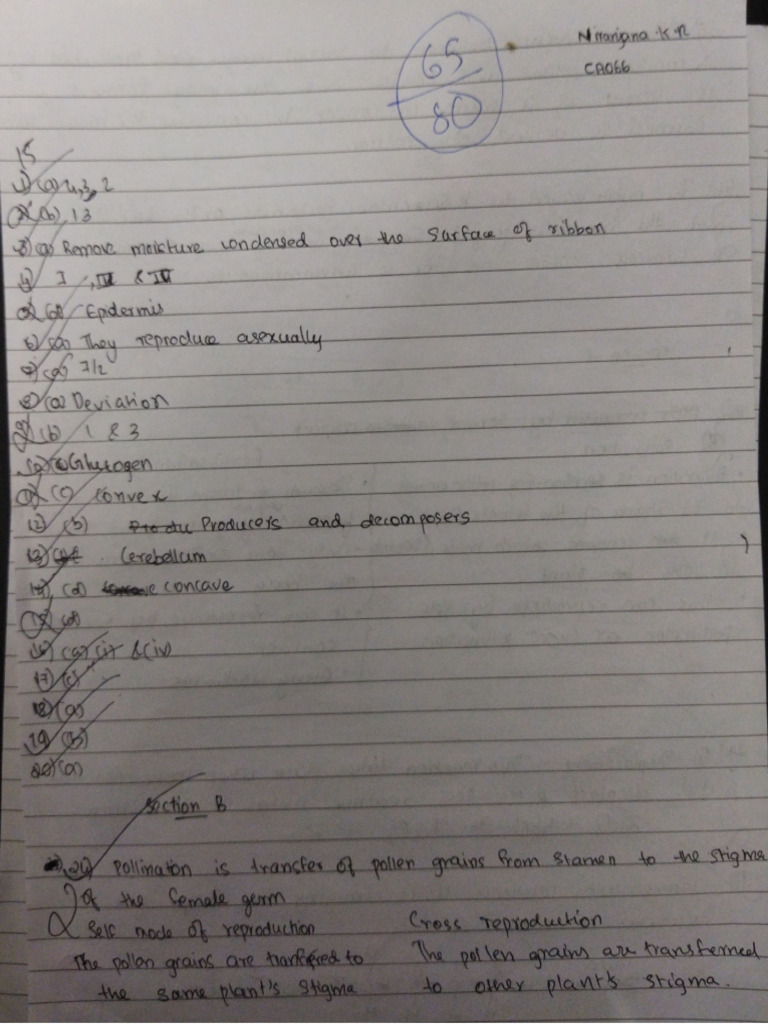 Niranjana K R
65
CA066
80
15
1) (a) 4,3, 2
2) (b), 13
3) (a) Remove moisture condensed over the surface of ribbon
4) I , III & IV
5) (d) Epidermis
6) (a) They reproduce asexually
7) (a) 7/2
8) (a) Deviation
9) (b) 1 & 3
Glycogen
11) (c) convex
12) (b) Producers and decomposers
13) Cerebellum
14) (d) concave
15) (d)
16) (a) (i) & (iv)
17) (c)
18) (a)
19) (b)
20) (a)
Section B
24) Pollination is transfer of pollen grains from stamen to the stigma
of the female germ
2 Self mode of reproduction Cross reproduction
The pollen grains are tranfered to The pollen grains are transferred
the same plant's stigma to other plant's stigma.